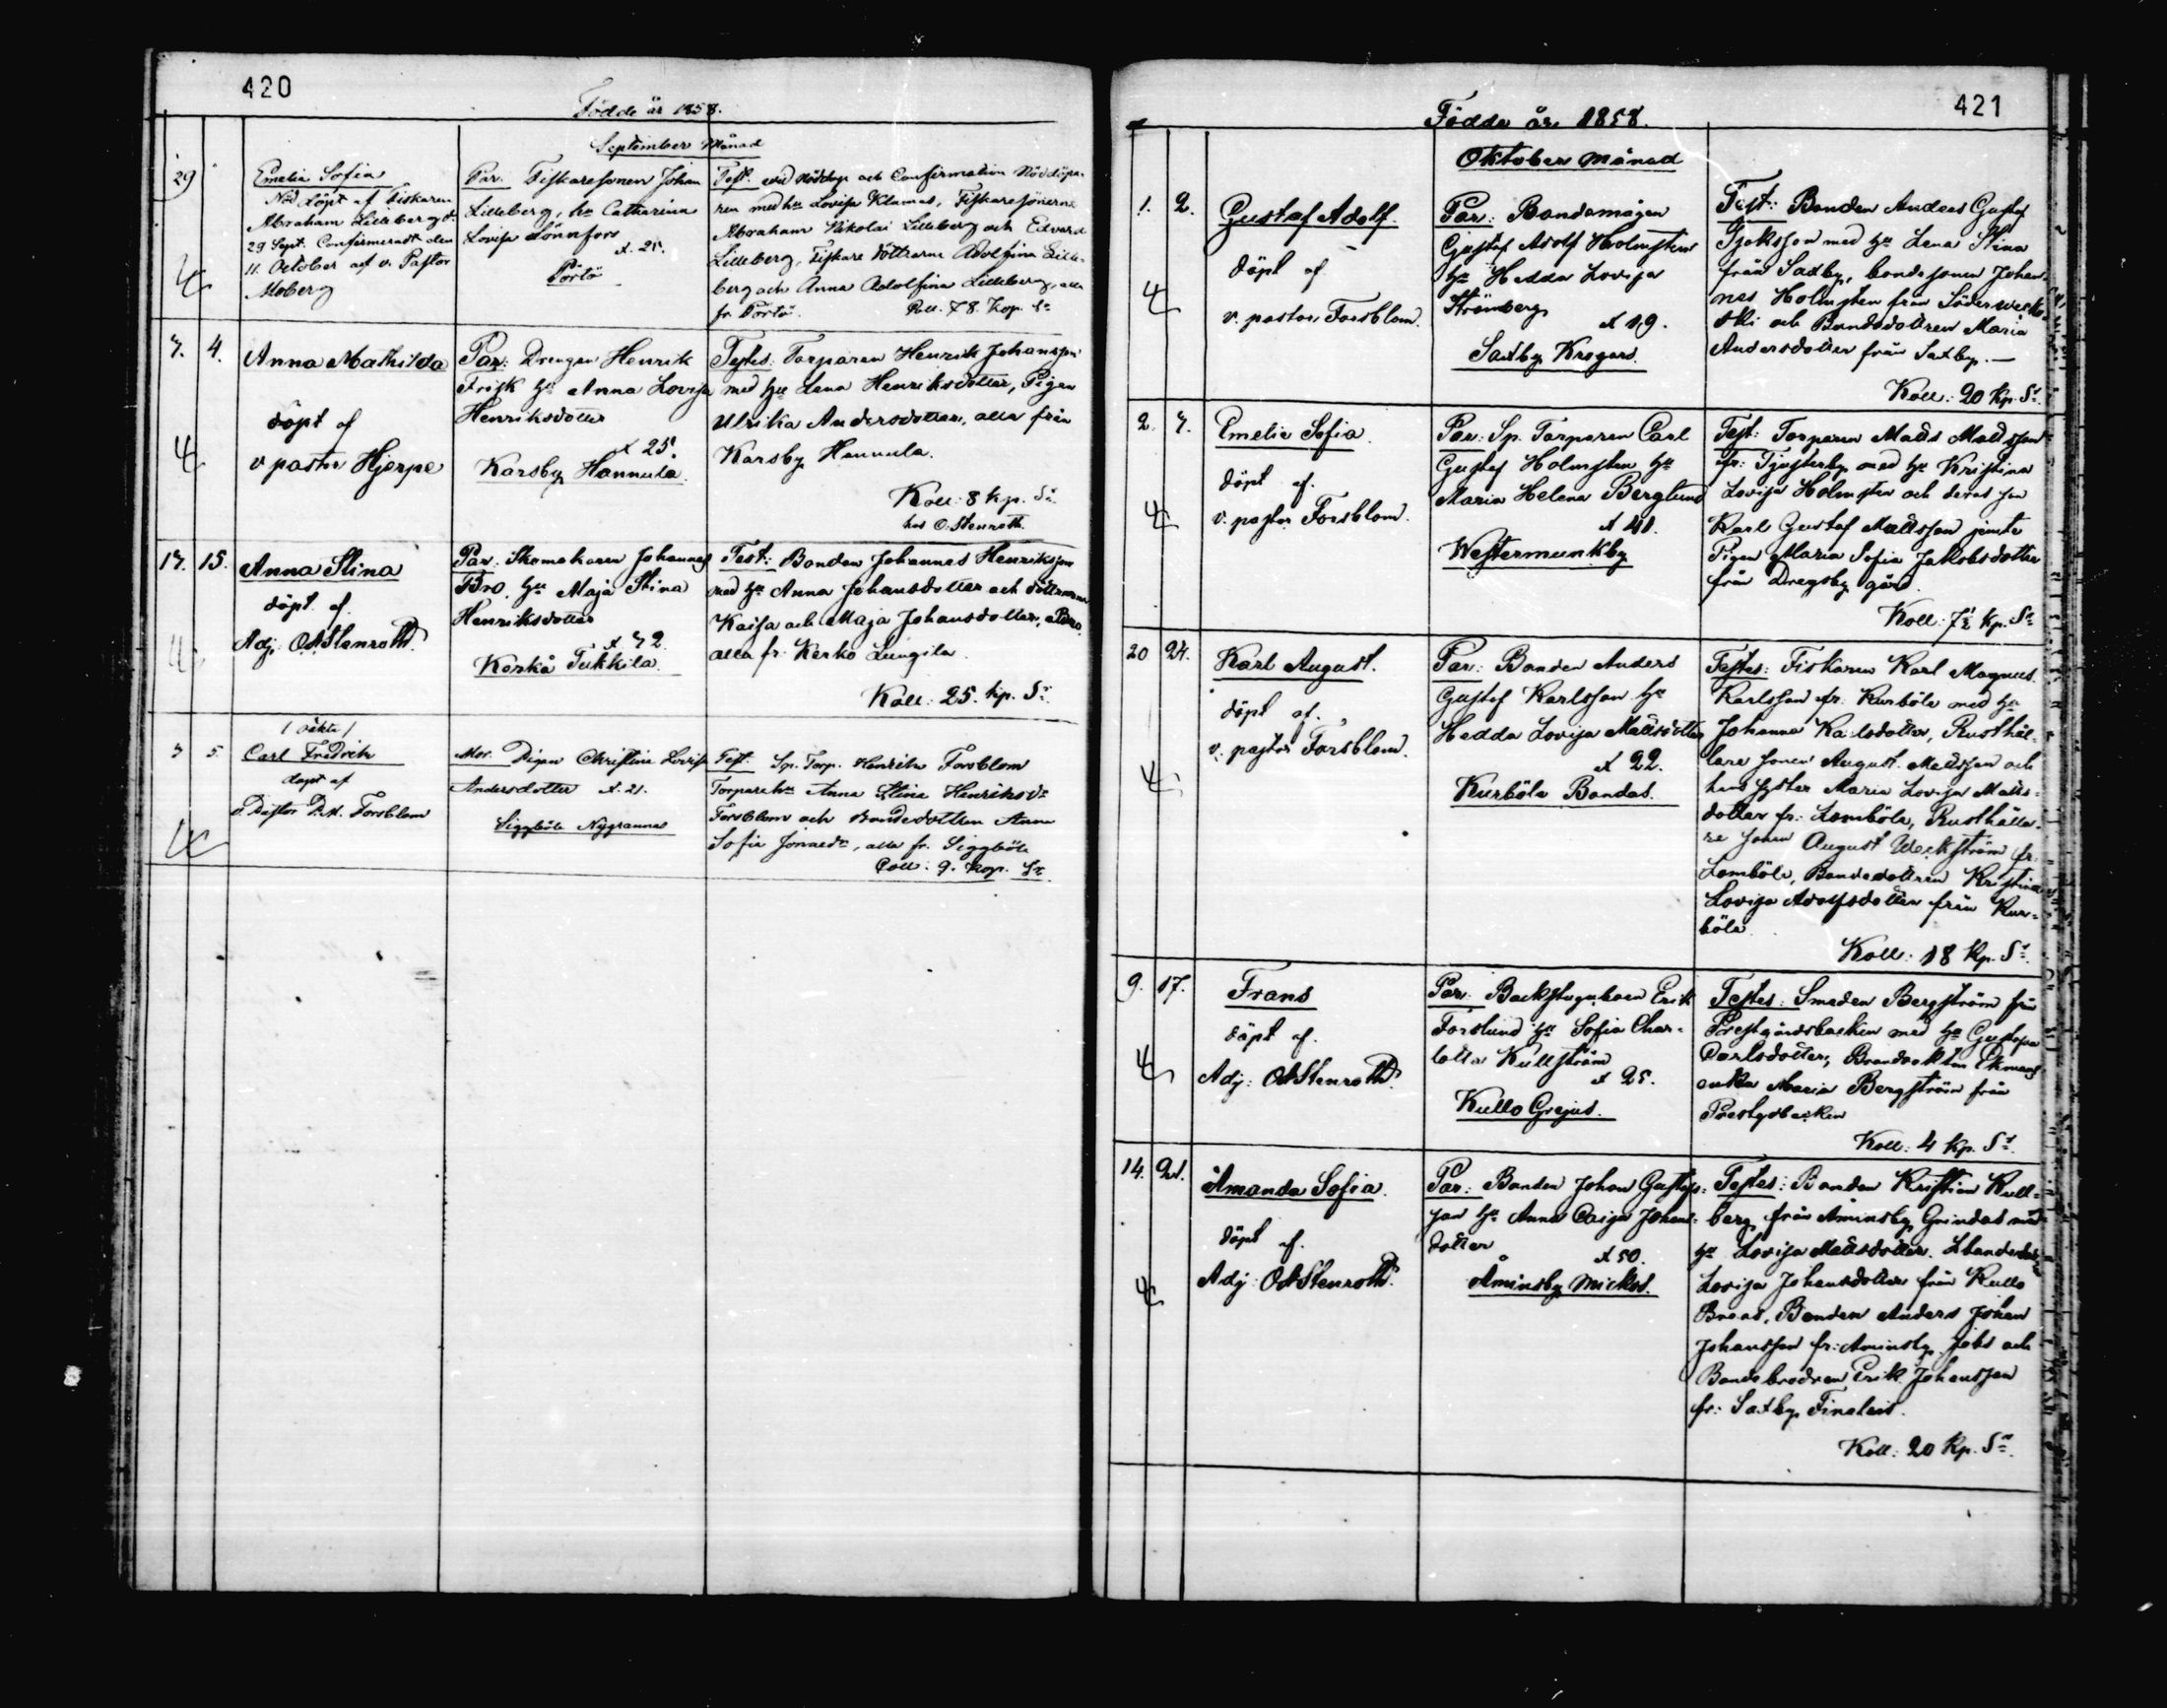 420
Födde år 1858.
September Månad
29
Emelia Sofia
Nöddöpt af Fiskaren
Abraham Lilleberg d.
29 Sept. Confirmeradt den
11. October af v. Pastor
Moberg
Par. Fiskaresonen Johan
Lilleberg, hu Catharina
Lovisa Lönnfors
A. 25.
Pörtö
Test. wid nöddop och Confirmation Nöddöpa-
ren med hu Lovisa Klamas, Fiskaresönerne
Abraham Nikolai Lilleberg och Edvard
Lilleberg, Fiskare döttrarne Adolfina Lille-
berg och Anna Adolfina Lilleberg, alla
fr. Pörtö.
Koll. 78. Kop. Sr
7. 4.
Anna Mathilda
döpt af
v pastor Hjerpe
Par: Drengen Henrik
Frisk hu Anna Lovisa
Henriksdotter
A 25.
Karsby Hannula.
Testes: Torparen Henrik Johansson
med hu Lena Henriksdotter, Pigan
Ulrika Andersdotter, alla från
Karsby Hannula.
Koll: 8 kp. Sr.
hos O. Stenroth.
17. 15.
Anna Stina
döpt af
Adj: OA Stenroth.
Par: Skomakaren Johannes
Bro. hu Maja Stina
Henriksdotter
A 42.
Kerkå Tukkila.
Test: Bonden Johannes Henriksson
med hu Anna Johansdotter och döttrarna
Kaisa och Maja Johansdotter,
alla fr. Kerko Lungila.
Koll: 25. kp. Sr.
/ oäkta /
3 5
Carl Fredrik
döpt af
v. Pastor Forsblom
Mor. Pigan Christina Lovisa
Andersdotter A. 21.
Siggböle Nygrannas
Test. Sp. Torp. Henrik Forsblom
Torparehu Anna Stina Henriksdr
Forsblom och Bondedottren Anna
Sofia Jonaedr, alla fr. Siggböle
Coll: 9. Kop. Sr.
421
Födde år 1858.
Oktober månad
1. 2.
Gustaf Adolf.
döpt af
v. pastor Forsblom.
Par: Bondamågen
Gustaf Adolf Holmsten
hu Hedda Lovisa
Strömberg
A 19.
Saxby Krogars.
Test: Bonden Anders Gustaf
med hu Lena Stina
från Saxby, bondesonen Johan-
nes Holmsten från Söderwecko-
ski och Bondedottren Maria
Andersdotter från Saxby. —
Koll: 20 Kp. Sr.
2. 7.
Emelie Sofia.
döpt af.
v. pastor Forsblom.
Par: Sp. Torparen Carl
Gustaf Holmsten hu
Maria Helena Berglund
A 41.
Westermunkby
Test: Torparen Matts Mattsson
fr: Tjusterby med hu Kristina
Lovisa Holmsten och deras son
Karl Gustaf Mattsson jemte
Pigan Maria Sofia Jakobsdotter
från Drägsby gård.
Koll: 7½ kp. Sr
20 24.
Karl August.
döpt af.
v. pastor Forsblom.
Par: Bonden Anders
Gustaf Karlsson hu
Hedda Lovisa Mattsdotter
A 22.
Kurböle Bondas.
Testes: Fiskaren Karl Magnus
Karlsson fr. Kurböle med hu
Johanna Karlsdotter, Rusthål-
lare sonen August Mattsson och
hans syster Maria Lovisa Matts-
dotter fr: Lomböle, Rusthålla-
re sonen August Weckström fr.
Lomböle, Bondedottren Kristina
Lovisa Adolfsdotter från Kur-
böle.
Koll: 18 Kp. Sr.
9. 17.
Frans
döpt af.
Adj: OA Stenroth.
Par. Backstugukarn Erik
Forslund hu Sofia Char-
lotta Kullström
A 25.
Kullo Grejus.
Testes: Smeden Bergström från
Prestgårdsbacken med hu Gustava
Carlsdotter, Brandvakten Ekmans
enka Maria Bergström från
Prestgsbacken
Koll: 4 kp. Sr.
14. 21.
Amanda Sofia.
döpt af.
Adj: OA Stenroth.
Par: Bonden Johan Gustafs-
son hu Anna Caisa Johans-
dotter
A 50.
Åminsby Mickos.
Testes: Bonden Kristian Kull-
berg från Åminsby Grindas med
hu Lovisa Mattsdotter.
Lovisa Johansdotter från Kullo
Bonden Anders Johan
Johansson fr: Åminsby Jobs och
Bondebrodren Erik Johansson
fr: Saxby Finalais.
Koll: 20 Kp. Sr.